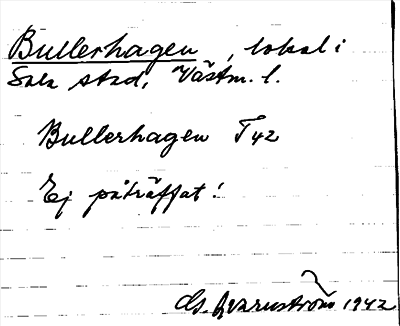 Bullerhagen, lokal i
Sala stad, Västm. l.
Bullerhagen T 42
Ej påträffat!
Gs. Qvarnström 1942